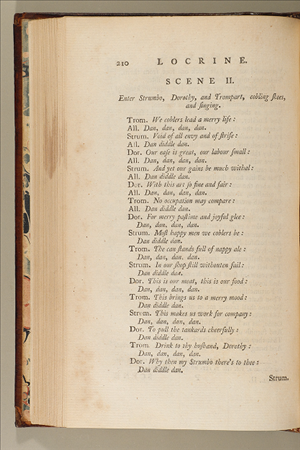 210 LOCRINE.
SCENE II.
Enter Strumbo, Dorothy, and Trompart, cobling ſhoes,
and ſinging.
Trom. We coblers lead a merry life:
All. Dan, dan, dan, dan.
Strum. Void of all envy and of ſtrife:
All. Dan diddle dan.
Dor. Our eaſe is great, our labour ſmall:
All. Dan, dan, dan, dan.
Strum. And yet our gains be much withal:
All. Dan diddle dan.
Dor. With this art ſo fine and fair:
All. Dan, dan, dan, dan.
Trom. No occupation may compare:
All. Dan diddle dan.
Dor. For merry paſtime and joyful glee:
Dan, dan, dan, dan.
Strum. Moſt happy men we coblers be:
Dan diddle dan.
Trom. The can ſtands full of nappy ale:
Dan, dan, dan, dan.
Strum. In our ſhop ſtill withouten fail:
Dan diddle dan.
Dor. This is our meat, this is our food:
Dan, dan, dan, dan.
Trom. This brings us to a merry mood:
Dan diddle dan.
Strum. This makes us work for company:
Dan, dan, dan, dan.
Dor. To pull the tankards cheerfully:
Dan diddle dan.
Trom. Drink to thy huſband, Dorothy:
Dan, dan, dan, dan.
Dor. Why then my Strumbo there's to thee:
Dan diddle dan.
Strum.